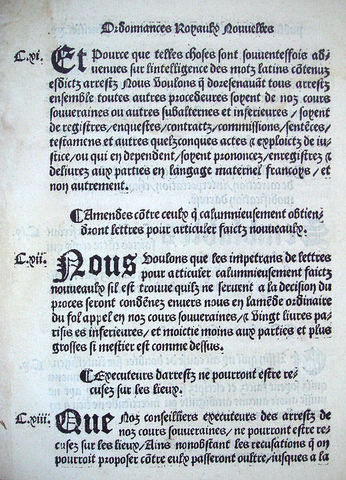 Ordonnances Royaulx Nouvelles
C.xi. Et Pource que telles choses sont souuenteffois ad-
uenues sur lintelligence des motz latins cõtenuz
esdictz arrestz Nous Voulons q̃ doresenauãt tous arrestz
ensemble toutes autres procedeures soyent de noz cours
souueraines ou autres subalternes et inferieures / soyent
de registres / enquestes / contractz / commissions / sentẽces /
testamens et autres quelzconques actes ⁊ exploictz de iu-
stice / ou qui en dependent / soyent prononcez / enregistrez ⁊
deliurez aux parties en langage maternel francoys / et
non autrement.
¶ Amendes cõtre ceulx q̃ calumnieusement obtien-
dront lettres pour articuler faictz nouueaulx.
C.xii. Nous Voulons que les impetrans de lettres
pour articuler calumnieusement faictz
nouueaulx sil est trouue quilz ne seruent a la decision du
proces seront condẽnez enuers nous en lamẽde ordinaire
du fol appel en noz cours souueraines / ⁊ Vingt liures pa-
risies es inferieures / et moictie moins aux parties et plus
grosses si mestier est comme dessus.
¶ Executeurs darrestz ne pourront estre re-
cusez sur les lieux.
C.xiii. Que Noz conseilliers executeurs des arrestz de
noz cours souueraines / ne pourront estre re-
cusez sur les lieux / Ains nonobstant les recusations q̃ on
pourroit proposer cõtre eulx passeront oultre / iusques a la